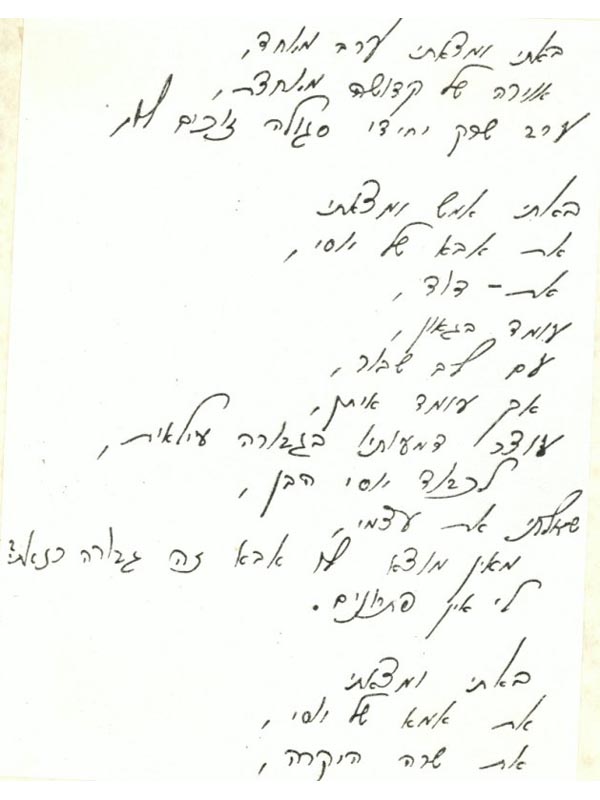 באתי ומצאתי ערב מיוחד,
אוירה של קדושה מיוחדת,
ערב שרק יחידי סגולה זוכים לו,
באתי אמש ומצאתי
את אבא של יוסי,
את - דוד,
עומד בגאון,
עם לב שבור,
אך עומד איתן,
עוצר דמעותיו בגבורה עילאית,
לכבוד יוסי הבן,
שאלתי את עצמי,
מאין מוצא לו אבא זה גבורה כזאת?
לי אין פתרונים.
באתי ומצאתי
את אמא של יוסי,
את שרה היקרה,